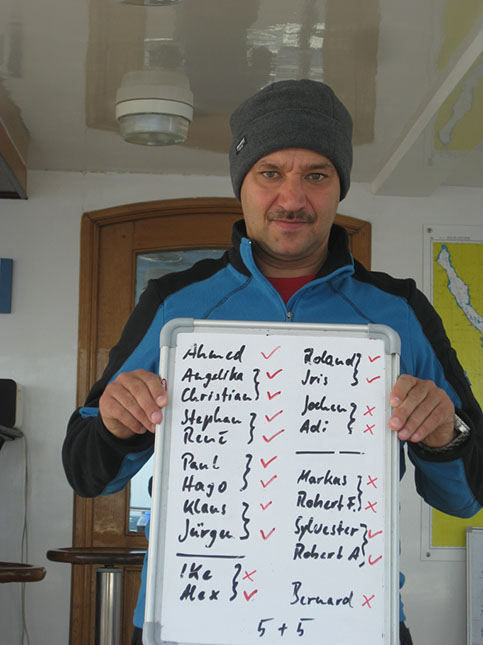 Ahmed ✓
Angelika } ✓
Christian } ✓
Stephan } ✓
René } ✓
Paul } ✓
Hago } ✓
Klaus } ✓
Jürgen } ✓
Ike } ×
Alex } ✓
Roland } ✓
Iris } ✓
Jochen } ×
Adi } ×
Markas } ×
Robert F. } ×
Sylvester } ✓
Robert A. } ✓
Bernard ×
5 + 5